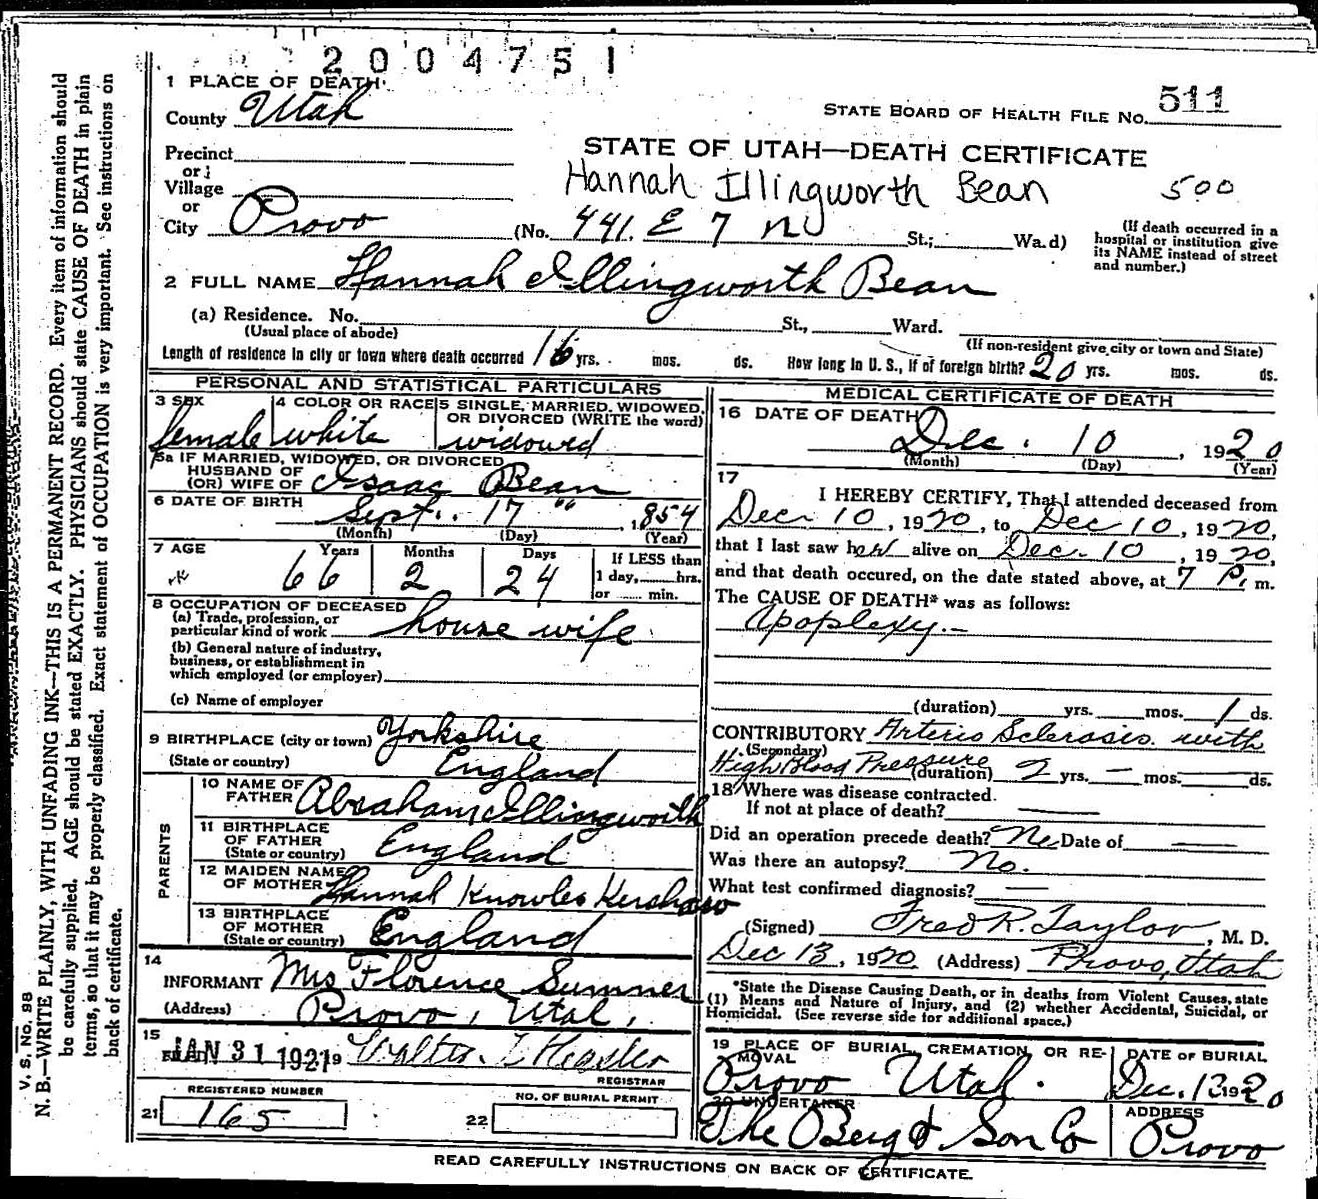 2004751
1 PLACE OF DEATH
STATE BOARD OF HEALTH FILE No. 511
County Utah
STATE OF UTAH—DEATH CERTIFICATE
Precinct
or
Village
Hannah Illingworth Bean 500
or
City Provo (No. 441. E 7 N St.; Ward)
(If death occurred in a hospital or institution give its NAME instead of street and number.)
2 FULL NAME Hannah Illingworth Bean
(a) Residence. No. St., Ward.
(Usual place of abode) (If non-resident give city or town and State)
Length of residence in city or town where death occurred 16 yrs. mos. ds. How long in U. S., if of foreign birth? 20 yrs. mos. ds.
PERSONAL AND STATISTICAL PARTICULARS
3 SEX female
4 COLOR OR RACE white
5 SINGLE, MARRIED, WIDOWED, OR DIVORCED (WRITE the word) widowed
5a IF MARRIED, WIDOWED, OR DIVORCED
HUSBAND OF
(OR) WIFE OF Isaac Bean
6 DATE OF BIRTH Sept. 17 " 1854
(Month) (Day) (Year)
7 AGE Years Months Days If LESS than
66 2 24 1 day, hrs.
or min.
8 OCCUPATION OF DECEASED
(a) Trade, profession, or
particular kind of work house wife
(b) General nature of industry,
business, or establishment in
which employed (or employer)
(c) Name of employer
9 BIRTHPLACE (city or town) Yorkshire
(State or country) England
PARENTS
10 NAME OF
FATHER Abraham Illingworth
11 BIRTHPLACE
OF FATHER
(State or country) England
12 MAIDEN NAME
OF MOTHER Hannah Knowles Kershaw
13 BIRTHPLACE
OF MOTHER
(State or country) England
14
INFORMANT Mrs Florence Sumner
(Address) Provo, Utah,
15 JAN 31 1921 19 Walter T
REGISTRAR
REGISTERED NUMBER
21 165
NO. OF BURIAL PERMIT
22
MEDICAL CERTIFICATE OF DEATH
16 DATE OF DEATH Dec. 10, 1920
(Month) (Day) (Year)
17
I HEREBY CERTIFY, That I attended deceased from
Dec 10, 1920, to Dec 10, 1920,
that I last saw her alive on Dec. 10, 1920,
and that death occured, on the date stated above, at 7 P. m.
The CAUSE OF DEATH* was as follows:
Apoplexy.-
(duration) yrs. mos. 1 ds.
CONTRIBUTORY Arterio Sclerosis with
(Secondary)
High Blood Pressure (duration) 2 yrs. — mos. ds.
18 Where was disease contracted.
If not at place of death? —
Did an operation precede death? No Date of —
Was there an autopsy? No.
What test confirmed diagnosis? —
(Signed) Fred R. Taylor, M. D.
Dec 13, 1920 (Address) Provo, Utah
*State the Disease Causing Death, or in deaths from Violent Causes, state
(1) Means and Nature of Injury, and (2) whether Accidental, Suicidal, or
Homicidal. (See reverse side for additional space.)
19 PLACE OF BURIAL, CREMATION, OR RE-
MOVAL
Provo Utah.
DATE OF BURIAL
Dec. 13 1920
20 UNDERTAKER
The Berg & Son Co
ADDRESS
Provo
READ CAREFULLY INSTRUCTIONS ON BACK OF CERTIFICATE.
V. S. No. 98
N. B.—WRITE PLAINLY, WITH UNFADING INK—THIS IS A PERMANENT RECORD. Every item of information should
be carefully supplied. AGE should be stated EXACTLY. PHYSICIANS should state CAUSE OF DEATH in plain
terms, so that it may be properly classified. Exact statement of OCCUPATION is very important. See instructions on
back of certificate.